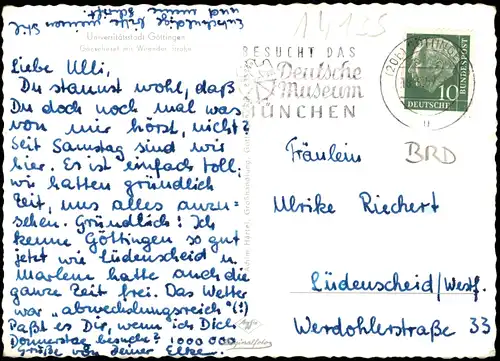 Entschuldige bitte immer Sie
und meine Schrift
Universitätsstadt Göttingen
Gänseliesel mit Weender Straße
Liebe Ulli,
Du staunst wohl, daß
Du doch noch mal was
von mir hörst, nicht?
Seit Samstag sind wir
hier. Es ist einfach toll,
wir hatten gründlich
Zeit, uns alles anzu-
sehen. Gründlich! Ich
kenne Göttingen so gut
jetzt wie Lüdenscheid u.
Marlene hatte auch die
ganze Zeit frei. Das Wetter
war „abwechslungsreich"(!)
Paßt es Dir, wenn ich Dich
Donnerstag besuche? 1000000
Grüße von deiner Elke.
BESUCHT DAS
Deutsche
Museum
MÜNCHEN
(20b) GÖTTINGEN
DEUTSCHE
BUNDESPOST
10
BRD
Fräulein
Ulrike Riechert
Lüdenscheid/Westf.
Werdohlerstraße 33